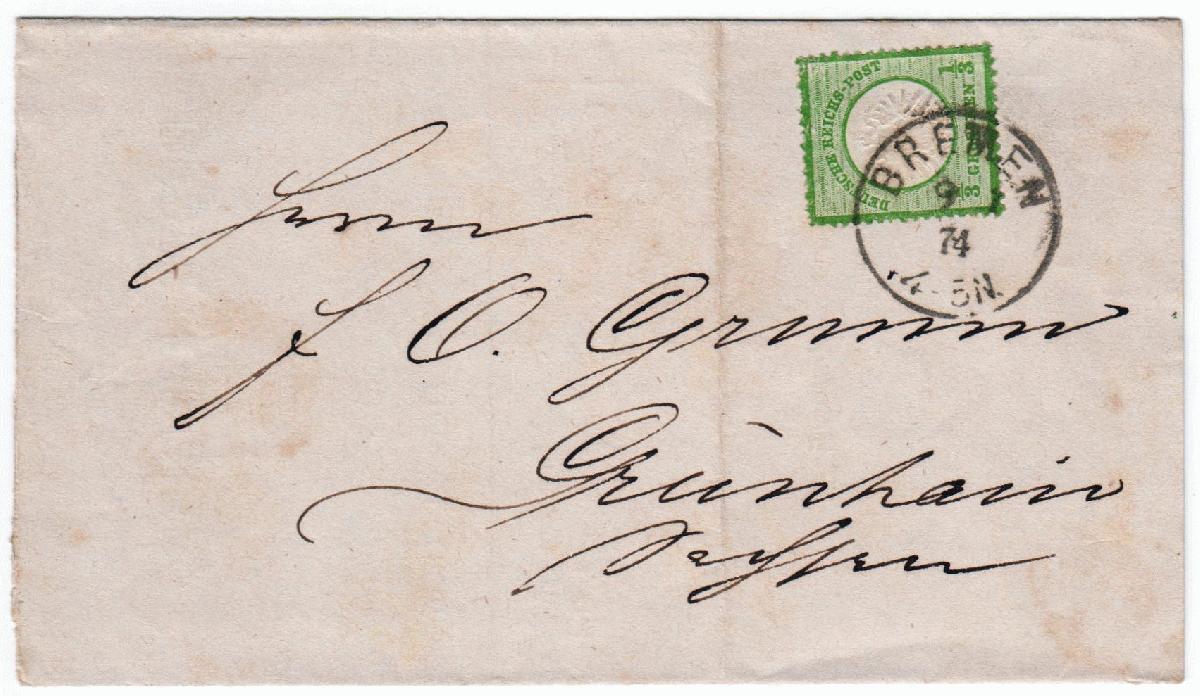 DEUTSCHE REICHS-POST
1/3 GROSCHEN 1/3
BREMEN
9
74
4-5N.
Herrn
F O. Grumm
Grünhain
Sachsen